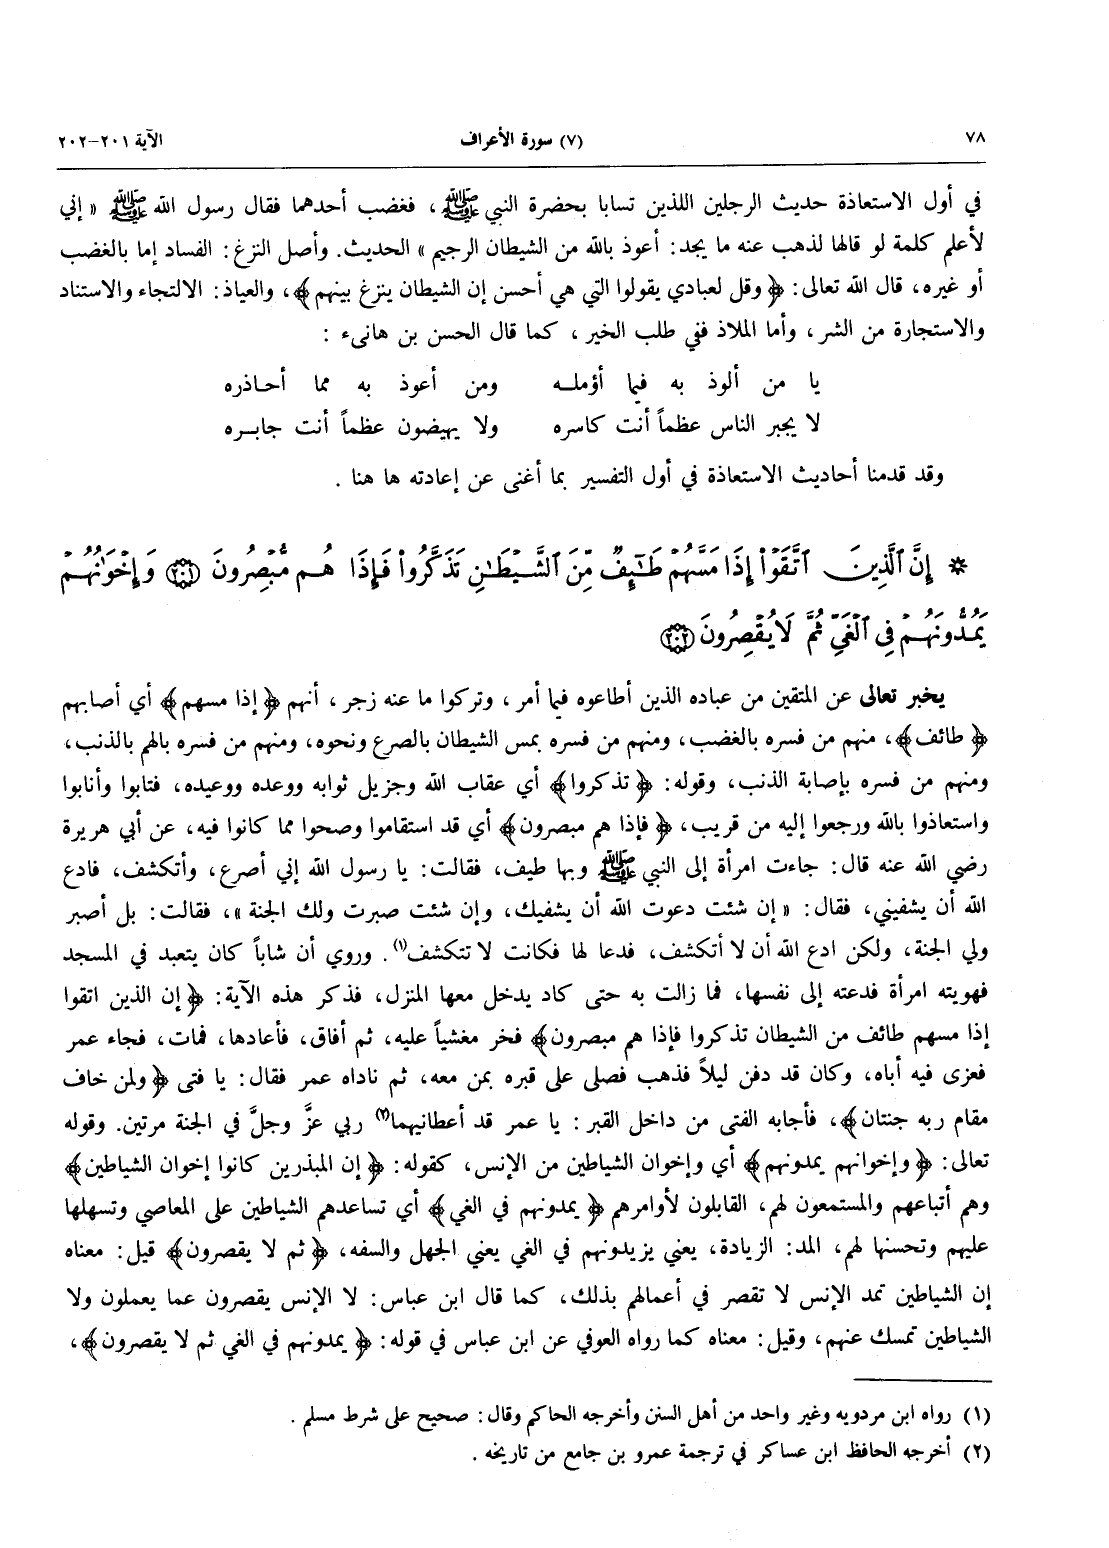 ٧٨
(٧) سورة الأعراف
الآية ٢٠١-٢٠٢
في أول الاستعاذة حديث الرجلين اللذين تسابا بحضرة النبي ﷺ، فغضب أحدهما فقال رسول الله ﷺ « إني
لأعلم كلمة لو قالها لذهب عنه ما يجد: أعوذ بالله من الشيطان الرجيم » الحديث. وأصل النزغ: الفساد إما بالغضب
أو غيره، قال الله تعالى: ﴿ وقل لعبادي يقولوا التي هي أحسن إن الشيطان ينزغ بينهم ﴾، والعياذ: الالتجاء والاستناد
والاستجارة من الشر، وأما الملاذ ففي طلب الخير، كما قال الحسن بن هانىء :
يا من ألوذ به فيما أؤملـه ومن أعوذ به مما أحـاذره
لا يجبر الناس عظماً أنت كاسره ولا يهيضون عظماً أنت جابـره
وقد قدمنا أحاديث الاستعاذة في أول التفسير بما أغنى عن إعادته ها هنا .
* إِنَّ ٱلَّذِينَ ٱتَّقَوْا۟ إِذَا مَسَّهُمْ طَـٰٓئِفٌ مِّنَ ٱلشَّيْطَـٰنِ تَذَكَّرُوا۟ فَإِذَا هُم مُّبْصِرُونَ ﴿٢٠١﴾ وَإِخْوَٰنُهُمْ
يَمُدُّونَهُمْ فِى ٱلْغَىِّ ثُمَّ لَا يُقْصِرُونَ ﴿٢٠٢﴾
يخبر تعالى عن المتقين من عباده الذين أطاعوه فيما أمر، وتركوا ما عنه زجر، أنهم ﴿ إذا مسهم ﴾ أي أصابهم
﴿ طائف ﴾، منهم من فسره بالغضب، ومنهم من فسره بمس الشيطان بالصرع ونحوه، ومنهم من فسره بالهم بالذنب،
ومنهم من فسره بإصابة الذنب، وقوله: ﴿ تذكروا ﴾ أي عقاب الله وجزيل ثوابه ووعده ووعيده، فتابوا وأنابوا
واستعاذوا بالله ورجعوا إليه من قريب، ﴿ فإذا هم مبصرون ﴾ أي قد استقاموا وصحوا مما كانوا فيه، عن أبي هريرة
رضي الله عنه قال: جاءت امرأة إلى النبي ﷺ وبها طيف، فقالت: يا رسول الله إني أصرع، وأتكشف، فادع
الله أن يشفيني، فقال: « إن شئت دعوت الله أن يشفيك، وإن شئت صبرت ولك الجنة »، فقالت: بل أصبر
ولي الجنة، ولكن ادع الله أن لا أتكشف، فدعا لها فكانت لا تتكشف(١). وروي أن شاباً كان يتعبد في المسجد
فهويته امرأة فدعته إلى نفسها، فما زالت به حتى كاد يدخل معها المنزل، فذكر هذه الآية: ﴿ إن الذين اتقوا
إذا مسهم طائف من الشيطان تذكروا فإذا هم مبصرون ﴾ فخر مغشياً عليه، ثم أفاق، فأعادها، فمات، فجاء عمر
فعزى فيه أباه، وكان قد دفن ليلاً فذهب فصلى على قبره بمن معه، ثم ناداه عمر فقال: يا فتى ﴿ ولمن خاف
مقام ربه جنتان ﴾، فأجابه الفتى من داخل القبر: يا عمر قد أعطانيهما(٢) ربي عزَّ وجلَّ في الجنة مرتين. وقوله
تعالى: ﴿ وإخوانهم يمدونهم ﴾ أي وإخوان الشياطين من الإنس، كقوله: ﴿ إن المبذرين كانوا إخوان الشياطين ﴾
وهم أتباعهم والمستمعون لهم، القابلون لأوامرهم ﴿ يمدونهم في الغي ﴾ أي تساعدهم الشياطين على المعاصي وتسهلها
عليهم وتحسنها لهم، المد: الزيادة، يعني يزيدونهم في الغي يعني الجهل والسفه، ﴿ ثم لا يقصرون ﴾ قيل: معناه
إن الشياطين تمد الإنس لا تقصر في أعمالهم بذلك، كما قال ابن عباس: لا الإنس يقصرون عما يعملون ولا
الشياطين تمسك عنهم، وقيل: معناه كما رواه العوفي عن ابن عباس في قوله: ﴿ يمدونهم في الغي ثم لا يقصرون ﴾،
(١) رواه ابن مردويه وغير واحد من أهل السنن وأخرجه الحاكم وقال: صحيح على شرط مسلم .
(٢) أخرجه الحافظ ابن عساكر في ترجمة عمرو بن جامع من تاريخه .